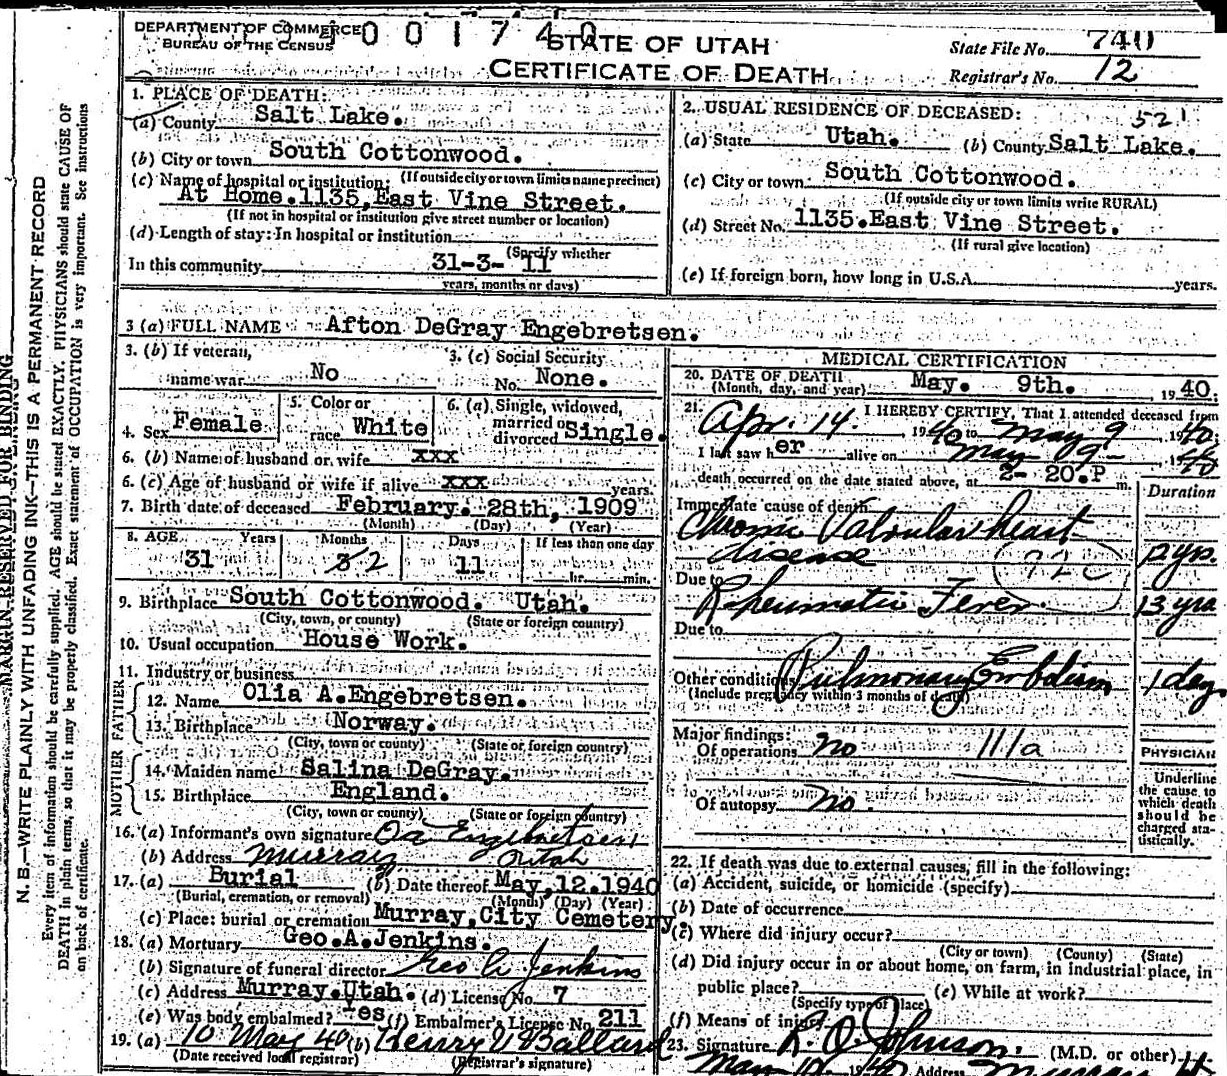 DEPARTMENT OF COMMERCE
BUREAU OF THE CENSUS
001740
STATE OF UTAH
CERTIFICATE OF DEATH
State File No. 740
Registrar's No. 12
MARGIN RESERVED FOR BINDING
N. B.—WRITE PLAINLY WITH UNFADING INK—THIS IS A PERMANENT RECORD
Every item of information should be carefully supplied. AGE should be stated EXACTLY. PHYSICIANS should state CAUSE OF
DEATH in plain terms, so that it may be properly classified. Exact statement of OCCUPATION is very important. See instructions
on back of certificate.
1. PLACE OF DEATH:
(a) County Salt Lake.
(b) City or town South Cottonwood.
(If outside city or town limits name precinct)
(c) Name of hospital or institution:
At Home. 1135, East Vine Street.
(If not in hospital or institution give street number or location)
(d) Length of stay: In hospital or institution
(Specify whether
In this community 31-3- 11
years, months or days)
2. USUAL RESIDENCE OF DECEASED:
521
(a) State Utah. (b) County Salt Lake.
(c) City or town South Cottonwood.
(If outside city or town limits write RURAL)
(d) Street No. 1135. East Vine Street.
(If rural give location)
(e) If foreign born, how long in U.S.A. years.
3 (a) FULL NAME Afton DeGray Engebretsen.
3. (b) If veteran, name war No
3. (c) Social Security No. None.
4. Sex Female
5. Color or race White
6. (a) Single, widowed, married or divorced Single.
6. (b) Name of husband or wife xxx
6. (c) Age of husband or wife if alive xxx years.
7. Birth date of deceased February. 28th, 1909
(Month) (Day) (Year)
8. AGE Years Months Days If less than one day
31 3 2 11 hr. min.
9. Birthplace South Cottonwood. Utah.
(City, town, or county) (State or foreign country)
10. Usual occupation House Work.
11. Industry or business
FATHER
12. Name Olia A. Engebretsen.
13. Birthplace Norway.
(City, town or county) (State or foreign country)
MOTHER
14. Maiden name Salina DeGray.
15. Birthplace England.
(City, town or county) (State or foreign country)
16. (a) Informant's own signature Oa Engebretsen
(b) Address Murray Utah
17. (a) Burial (b) Date thereof May, 12. 1940
(Burial, cremation, or removal) (Month) (Day) (Year)
(c) Place: burial or cremation Murray, City Cemetery
18. (a) Mortuary Geo. A. Jenkins.
(b) Signature of funeral director Geo A Jenkins
(c) Address Murray. Utah. (d) License No. 7
(e) Was body embalmed? Yes (f) Embalmer's License No. 211
19. (a) 10 May 40 (b) Henry Ballard
(Date received local registrar) (Registrar's signature)
MEDICAL CERTIFICATION
20. DATE OF DEATH
(Month, day, and year) May. 9th. 1940.
21. I HEREBY CERTIFY, That I attended deceased from
Apr. 14. 1940 to May 9 1940.
I last saw her alive on May 9- 1940
death occurred on the date stated above, at 2- 20. P m.
Duration
Immediate cause of death
Chronic Valvular heart
disease 92c 12 yrs.
Due to
Rheumatic Fever. 13 yrs
Due to
Other conditions Pulmonary Embolism 1 day.
(Include pregnancy within 3 months of death)
Major findings:
Of operations no 111a
Of autopsy no.
PHYSICIAN
Underline
the cause to
which death
should be
charged sta-
tistically.
22. If death was due to external causes, fill in the following:
(a) Accident, suicide, or homicide (specify)
(b) Date of occurrence
(c) Where did injury occur?
(City or town) (County) (State)
(d) Did injury occur in or about home, on farm, in industrial place, in
public place? (e) While at work?
(Specify type of place)
(f) Means of injury
23. Signature R. O. Johnson. (M.D. or other)
May 1940 Address Murray